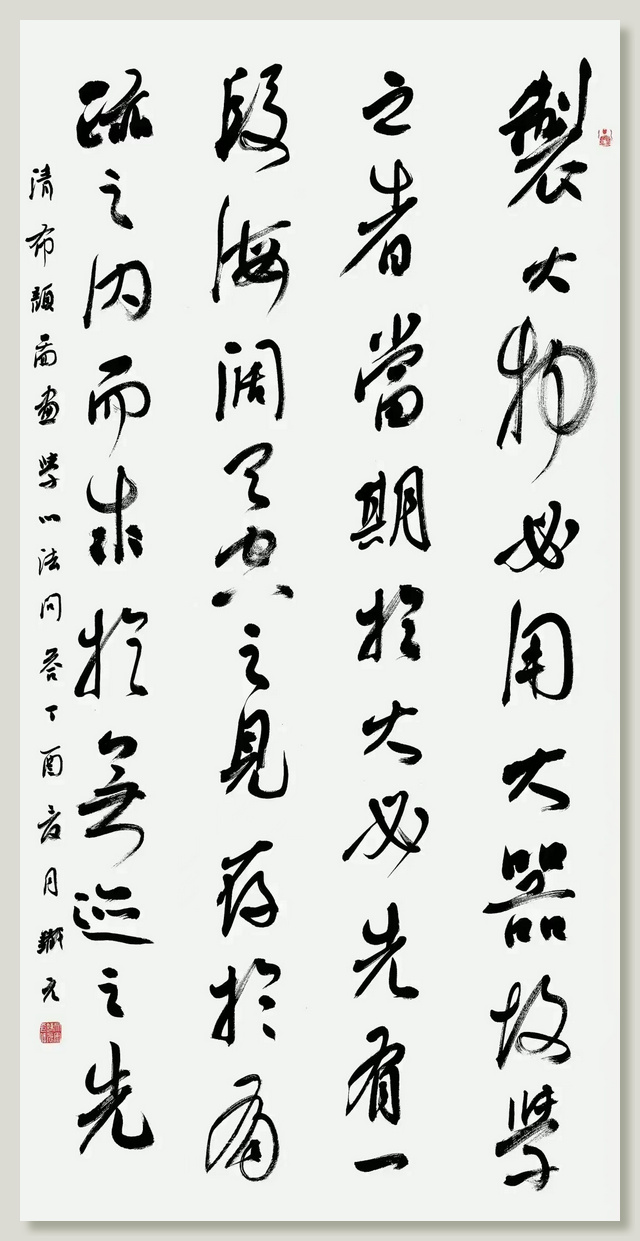 製大物必用大器故學
之者當期於大必先有一
段海闊天空之見存於有
跡之内而求於無迹之先
清布顏圖畫學心法問答丁酉夏月